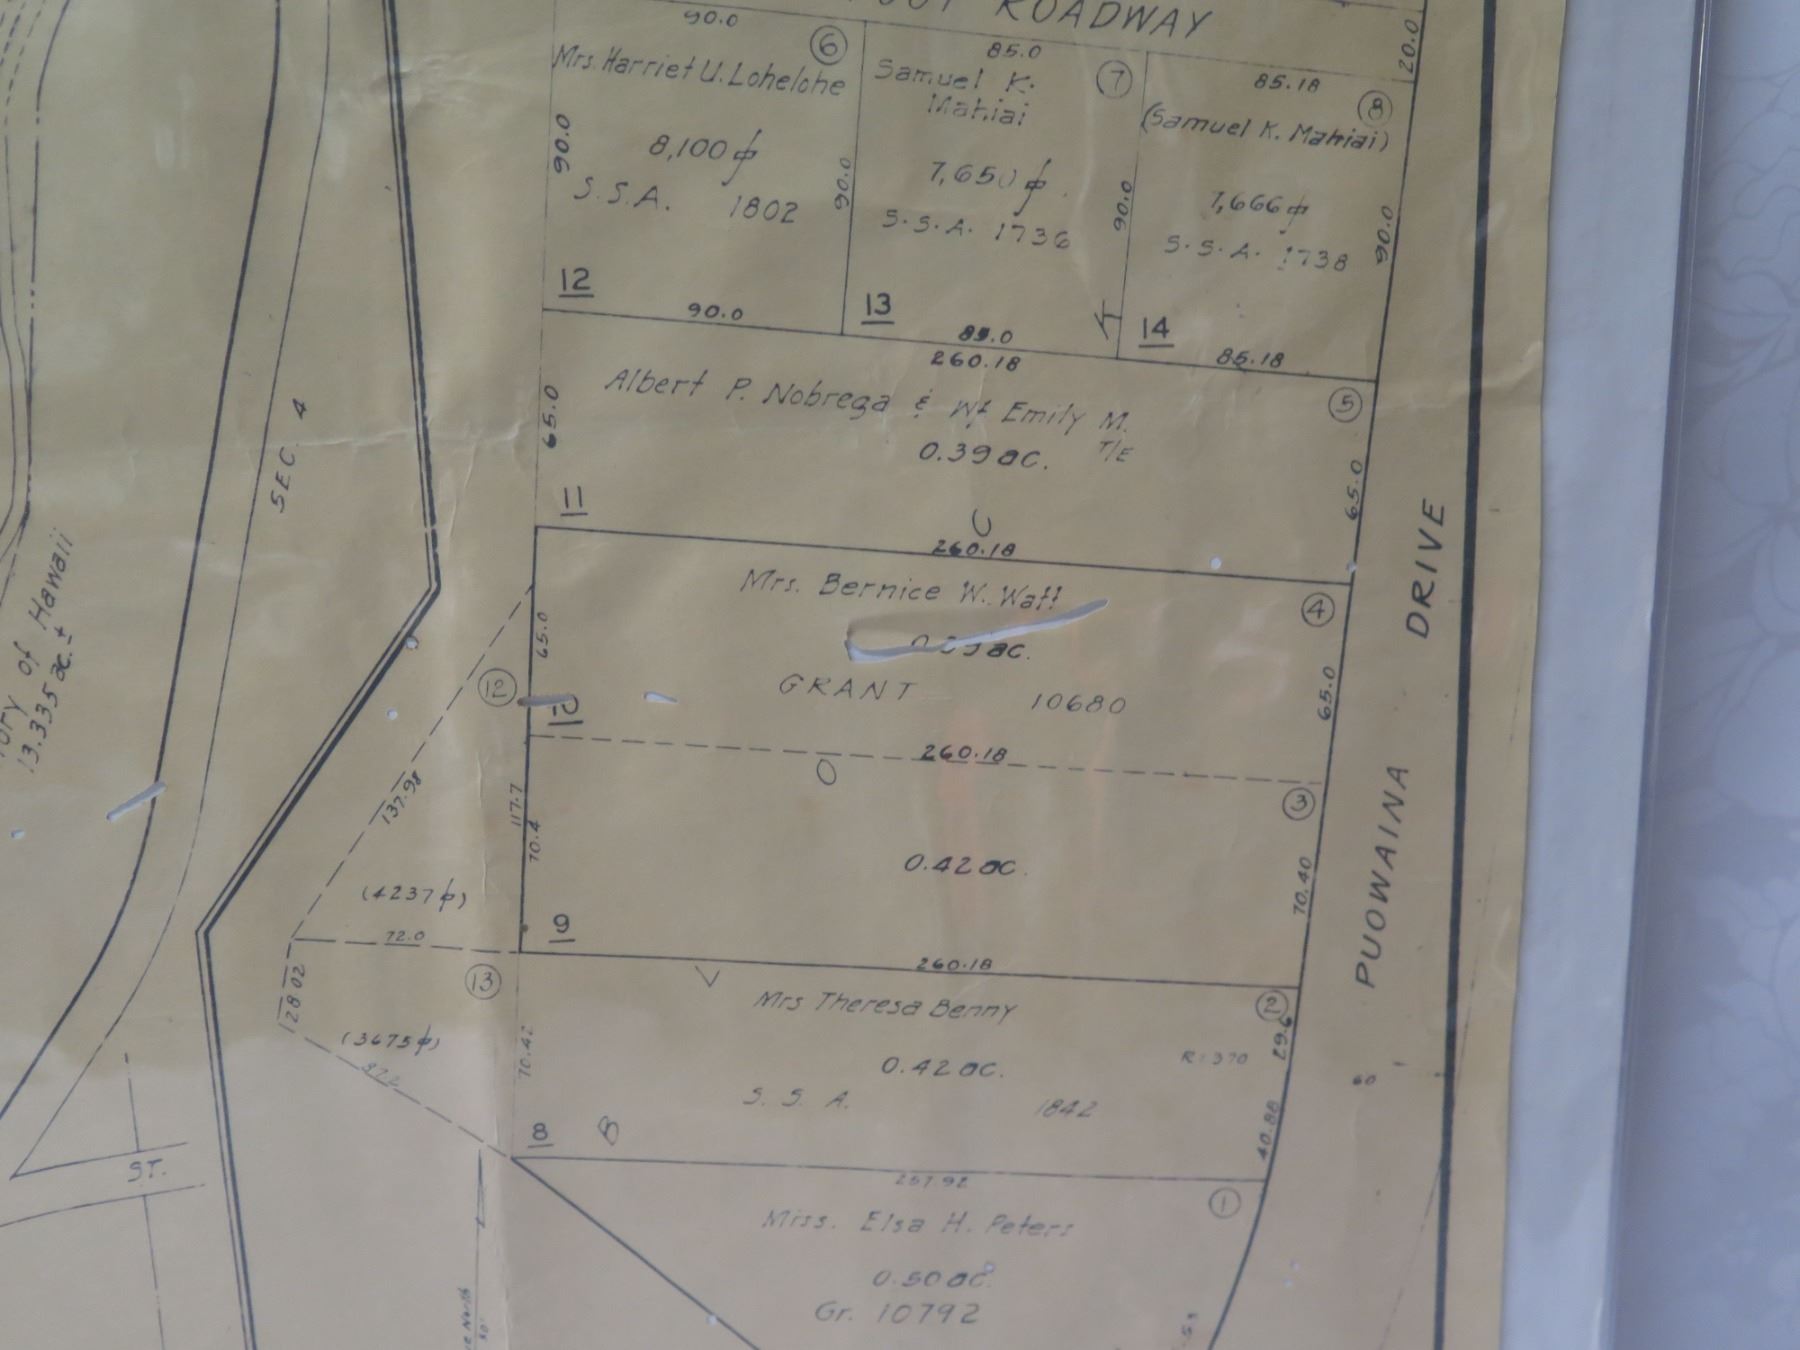 ROADWAY
90.0
6
Mrs. Harriet U. Lohelohe
90.0
8,100
S.S.A. 1802
90.0
12
90.0
85.0
7
Samuel K.
Mahiai
7,650
S.S.A. 1736
90.0
13
85.0
20.0
85.18
8
(Samuel K. Mahiai)
7,666
S.S.A. 1738
90.0
14
85.18
260.18
5
Albert P. Nobrega & Wf Emily M.
T/E
0.39 ac.
65.0
65.0
11
260.18
SEC. 4
of Hawaii
13.335 ac. ±
4
Mrs. Bernice W. Watt
ac.
65.0
65.0
12
GRANT 10680
260.18
3
117.7
70.4
137.98
0.42 ac.
70.40
(4237)
72.0
9
260.18
13
128.02
2
Mrs Theresa Benny
29.6
(3675)
70.42
0.42 ac.
R=370
S. S. A. 1842
40.88
8
B
257.92
ST.
1
Miss. Elsa H. Peters
0.50 ac.
Gr. 10792
60
PUOWAINA DRIVE